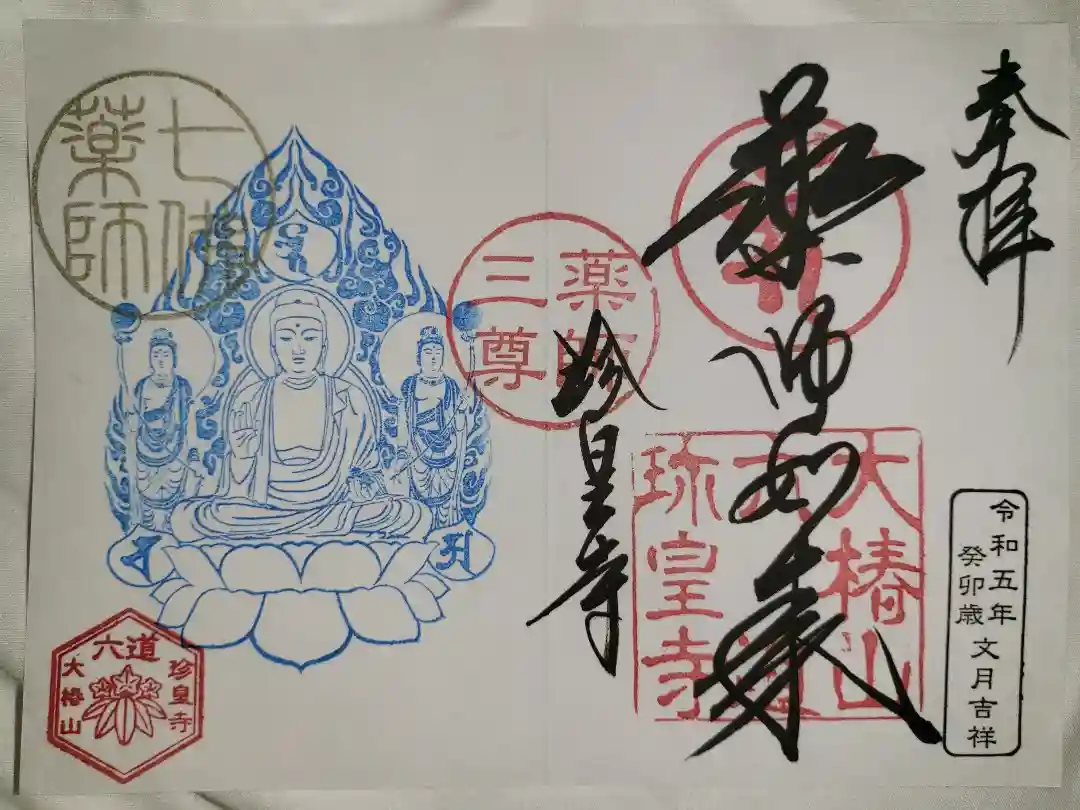 奉拝
薬師如来
珍皇寺
大椿山
六道
珎皇寺
薬師
三尊
七佛
薬師
令和五年
癸卯歳
文月吉祥
六道
珍皇寺
大椿山